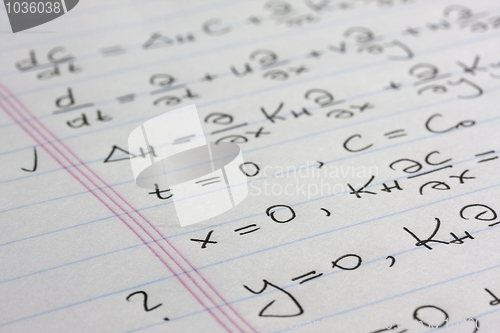 dc/dt = Δ_H c + ∂
d/dt = ∂/∂t + u ∂/∂x + v ∂/∂y
√ Δ_H = ∂/∂x K_H ∂/∂x + ∂/∂y K
t = 0 , c = c₀
x = 0 , K_H ∂c/∂x =
? y = 0 , K_H ∂
= 0